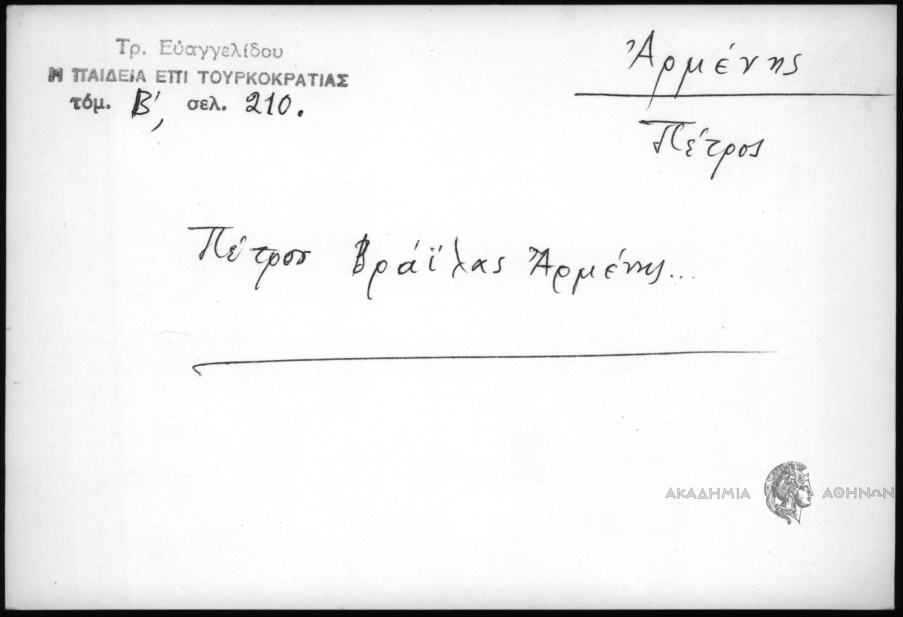 Τρ. Εὐαγγελίδου
Η ΠΑΙΔΕΙΑ ΕΠΙ ΤΟΥΡΚΟΚΡΑΤΙΑΣ
τόμ. Β', σελ. 210.
Ἀρμένης
Πέτρος
Πέτρος Βράϊλας Ἀρμένης...
ΑΚΑΔΗΜΙΑ ΑΘΗΝΩΝ